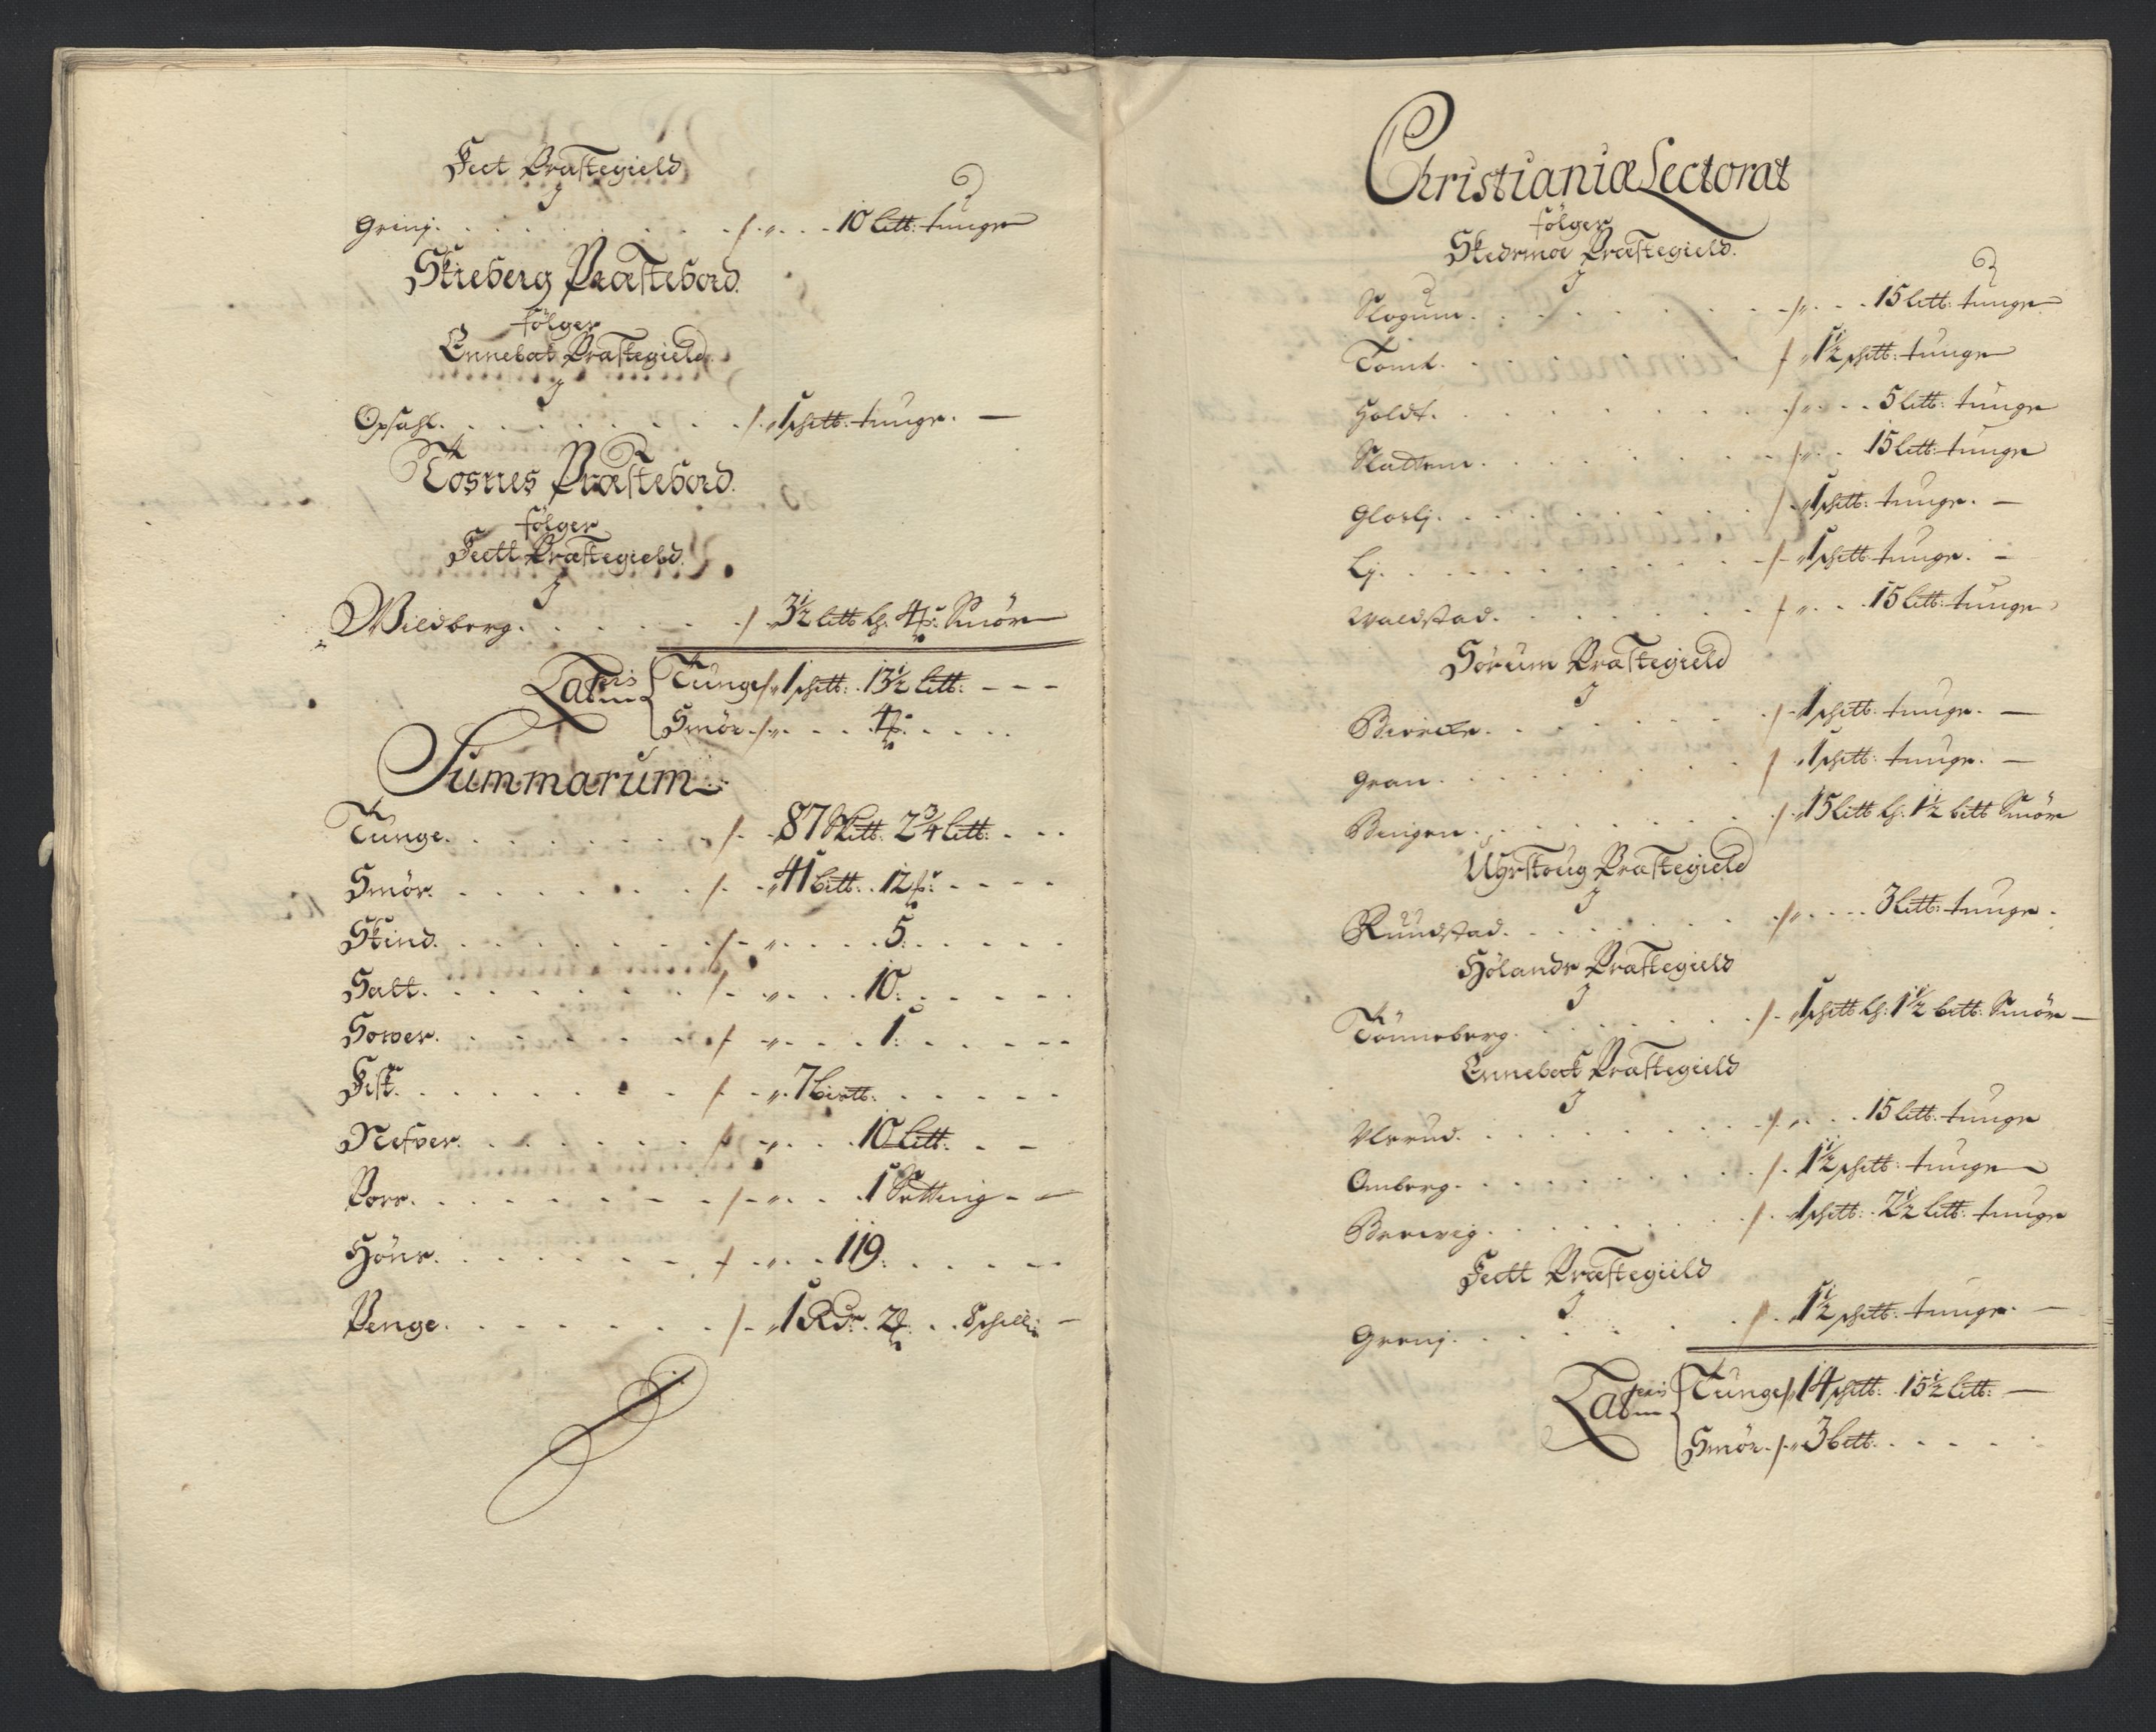 Feet Præstegield
J
Grinj. . . . . . . . . 10 lttb: tunge
Skieberg Præstebord.
følger
Ennebak Præstegield.
J
Opsahl. . . . . . . . 1 schttb: tunge. —
Tosnes Præstebord.
følger
Feett Præstegield.
J
Wieldberg. . . . . . 3½ lttb h: 4 f: Smör
Lateris Tunge 1 schttb: 13½ lttb: - - -
Smör . . . . 4 f: . . . .
Summarum
Tunge. . . . . . . 87 Skttb: 2¾ lttb: . . .
Smör. . . . . . . 41 bttb: 12 f: . . . .
Skind. . . . . . . . . . 5: . . . . .
Salt. . . . . . . . . . 10: . . . . .
Sower. . . . . . . . . . 1: . . . . .
Fisk. . . . . . . . 7 bisttb: . . . . .
Nefver. . . . . . . . . . 10 lttb: . -
Porr. . . . . . . . . . 1 Setting - -
Höns. . . . . . . . . . 119: . . . . .
Penge. . . . . . . 1 Rdr. 2 . . 8 schilli —
Christianiæ Lectorat
følger
Skedsmoe Præstegield.
J
Slogum. . . . . . . . 15 lttb: tunge
Tomt. . . . . . . . 1½ schttb: tunge
Holdt. . . . . . . . . 5 lttb: tunge
Slattum. . . . . . . . 15 lttb: tunge
Glosli. . . . . . . . 1 schttb: tunge. —
Lj. . . . . . . . . 1 schttb: tunge. —
Waldstad. . . . . . . . 15 lttb: tunge
Sörum Præstegield
J
Bierche. . . . . . . 1 schttb: tunge. —
Gran. . . . . . . . 1 schttb: tunge. —
Bingen. . . . . . . 15 lttb h: 1½ bttb Smör
Uhrskoug Præstegield
J
Rundstad. . . . . . . . 3 lttb: tunge.
Hölands Præstegield
J
Tönneberg. . . . . . 1 schttb h: 1½ bttb: Smör —
Ennebak Præstegield
J
Ulsrud. . . . . . . . 15 lttb: tunge
Omberg. . . . . . . . 1½ schttb: tunge
Brevig. . . . . . . 1 schttb: 2½ lttb: tunge
Feett Præstegield
J
Grenj. . . . . . . . 1½ schttb: tunge. —
Lateris Tunge 14 schttb: 15½ lttb: —
Smör 3 bttb. . . . . .